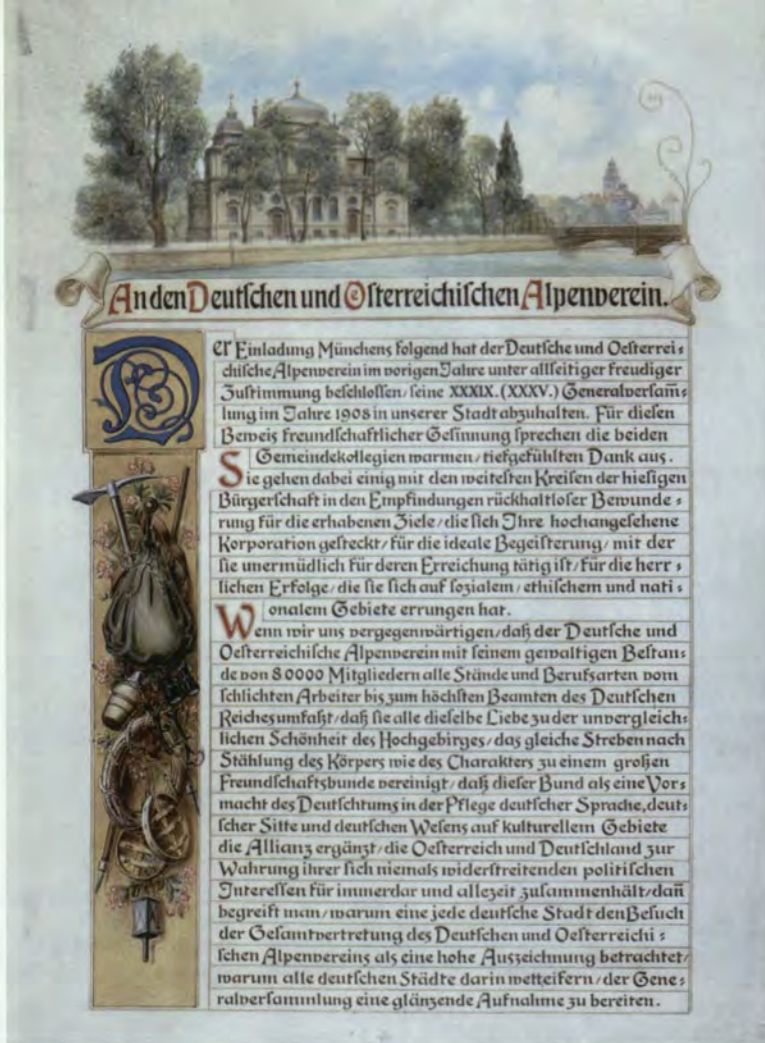 An den Deutschen und Österreichischen Alpenverein.
Der Einladung Münchens folgend hat der Deutsche und Oesterrei=
chische Alpenverein im vorigen Jahre unter allseitiger freudiger
Zustimmung beschlossen, seine XXXIX. (XXXV.) Generalversam̅=
lung im Jahre 1908 in unserer Stadt abzuhalten. Für diesen
Beweis freundschaftlicher Gesinnung sprechen die beiden
Gemeindekollegien warmen, tiefgefühlten Dank aus.
Sie gehen dabei einig mit den weitesten Kreisen der hiesigen
Bürgerschaft in den Empfindungen rückhaltloser Bewunde=
rung für die erhabenen Ziele, die sich Ihre hochangesehene
Korporation gesteckt, für die ideale Begeisterung, mit der
sie unermüdlich für deren Erreichung tätig ist, für die herr=
lichen Erfolge, die sie sich auf sozialem, ethischem und nati=
onalem Gebiete errungen hat.
Wenn wir uns vergegenwärtigen, daß der Deutsche und
Oesterreichische Alpenverein mit seinem gewaltigen Bestan=
de von 80000 Mitgliedern alle Stände und Berufsarten vom
schlichten Arbeiter bis zum höchsten Beamten des Deutschen
Reiches umfaßt, daß sie alle dieselbe Liebe zu der unvergleich=
lichen Schönheit des Hochgebirges, das gleiche Streben nach
Stählung des Körpers wie des Charakters zu einem großen
Freundschaftsbunde vereinigt, daß dieser Bund als eine Vor=
macht des Deutschtums in der Pflege deutscher Sprache, deut=
scher Sitte und deutschen Wesens auf kulturellem Gebiete
die Allianz ergänzt, die Oesterreich und Deutschland zur
Wahrung ihrer sich niemals widerstreitenden politischen
Interessen für immerdar und allezeit zusammenhält, dan̅
begreift man, warum eine jede deutsche Stadt den Besuch
der Gesamtvertretung des Deutschen und Oesterreichi=
schen Alpenvereins als eine hohe Auszeichnung betrachtet,
warum alle deutschen Städte darin wetteifern, der Gene=
ralversammlung eine glänzende Aufnahme zu bereiten.